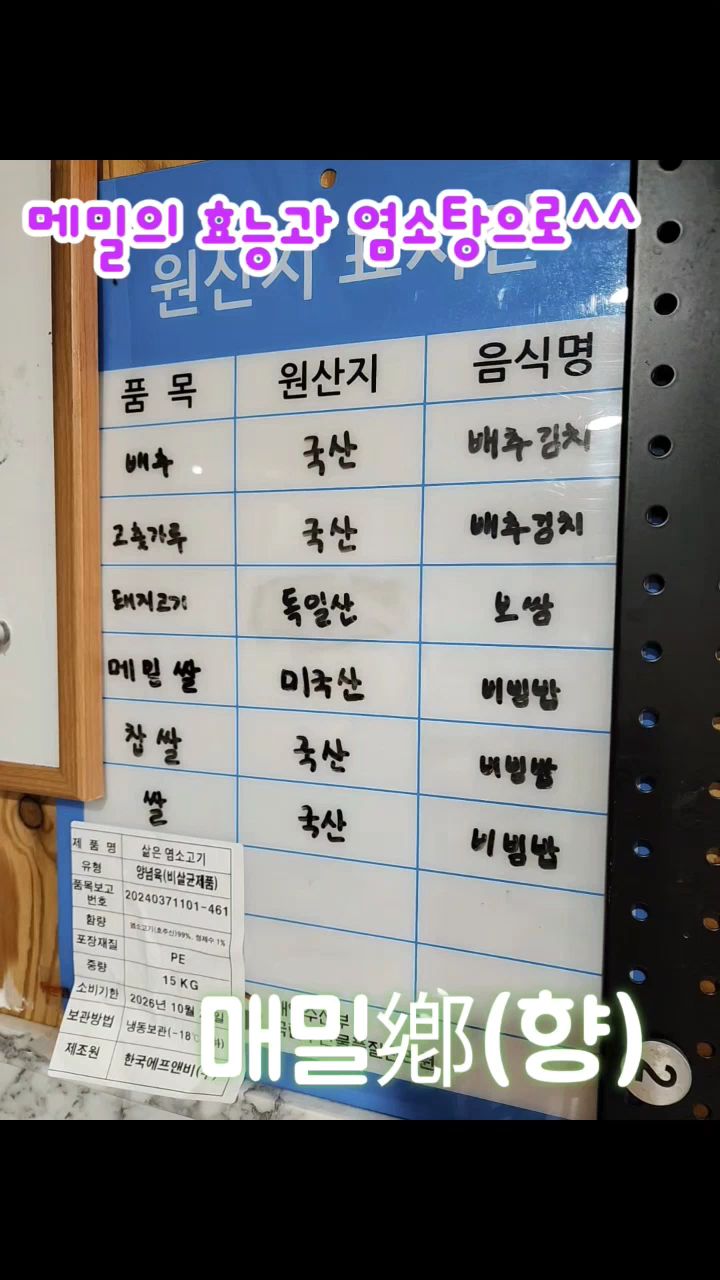 메밀의 효능과 염소탕으로^^
원산지
품 목 원산지 음식명
배추 국산 배추김치
고춧가루 국산 배추김치
돼지고기 독일산 보쌈
메밀쌀 미국산 비빔밥
찹쌀 국산 비빔밥
쌀 국산 비빔밥
제 품 명 삶은 염소고기
유형 양념육(비살균제품)
품목보고번호 20240371101-461
함량 염소고기(호주산)99%, 정제수 1%
포장재질 PE
중량 15 KG
소비기한 2026년 10월
보관방법 냉동보관(-18
제조원 한국에프앤비
매밀鄕(향)
2